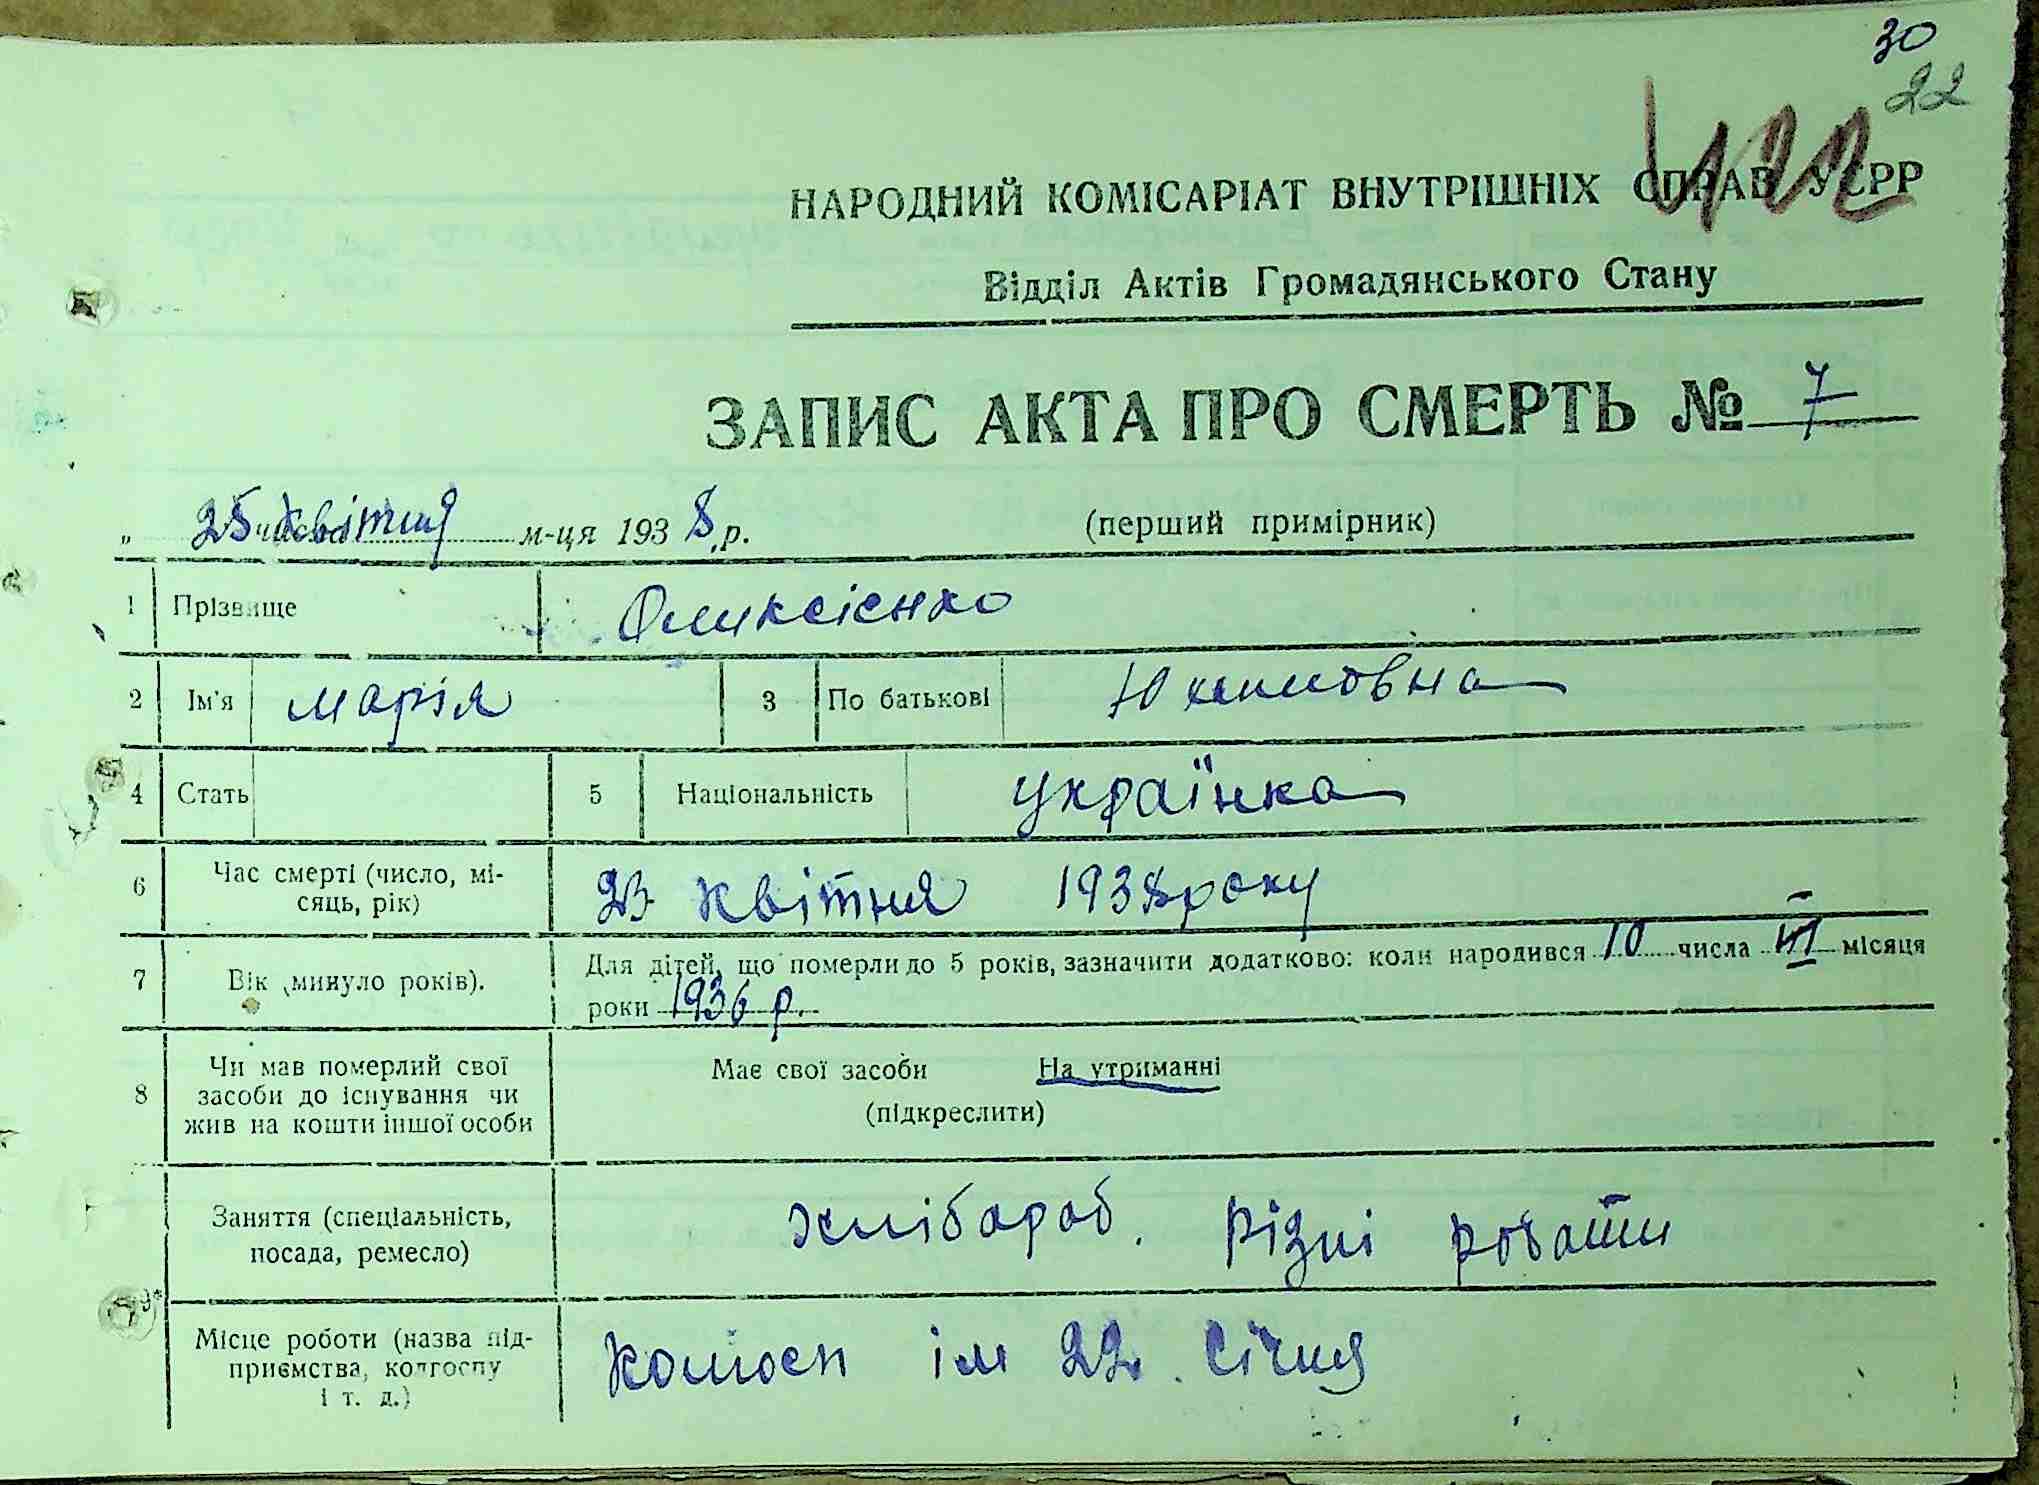 30
22
422
НАРОДНИЙ КОМІСАРІАТ ВНУТРІШНІХ СПРАВ УСРР
Відділ Актів Громадянського Стану
ЗАПИС АКТА ПРО СМЕРТЬ № 7
„ 25 числа квітня м-ця 1938 р. (перший примірник)
1 Прізвище Оликсієнко
2 Ім'я Марія 3 По батькові
4 Стать 5 Національність українка
6 Час смерті (число, мі-
сяць, рік) 23 квітня 1938 року
7 Вік (минуло років). Для дітей, що померли до 5 років, зазначити додатково: коли народився 10 числа III місяця
роки 1936 р.
8 Чи мав померлий свої
засоби до існування чи
жив на кошти іншої особи
Має свої засоби На утриманні
(підкреслити)
Заняття (спеціальність,
посада, ремесло) хлібароб. Різні роботи
9*
Місце роботи (назва під-
приємства, колгоспу
і т. д.) ім 22 Січня